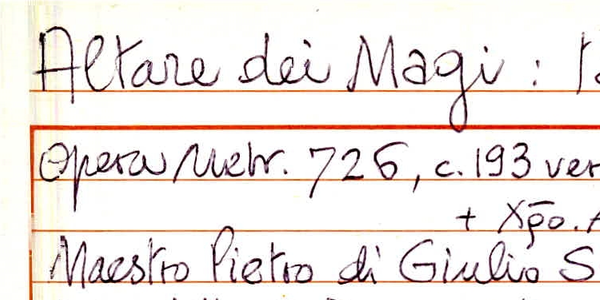 Altare dei Magi :
Opera Metr. 726, c. 193 ver
+ Xp̄o.
Maestro Pietro di Giulio S